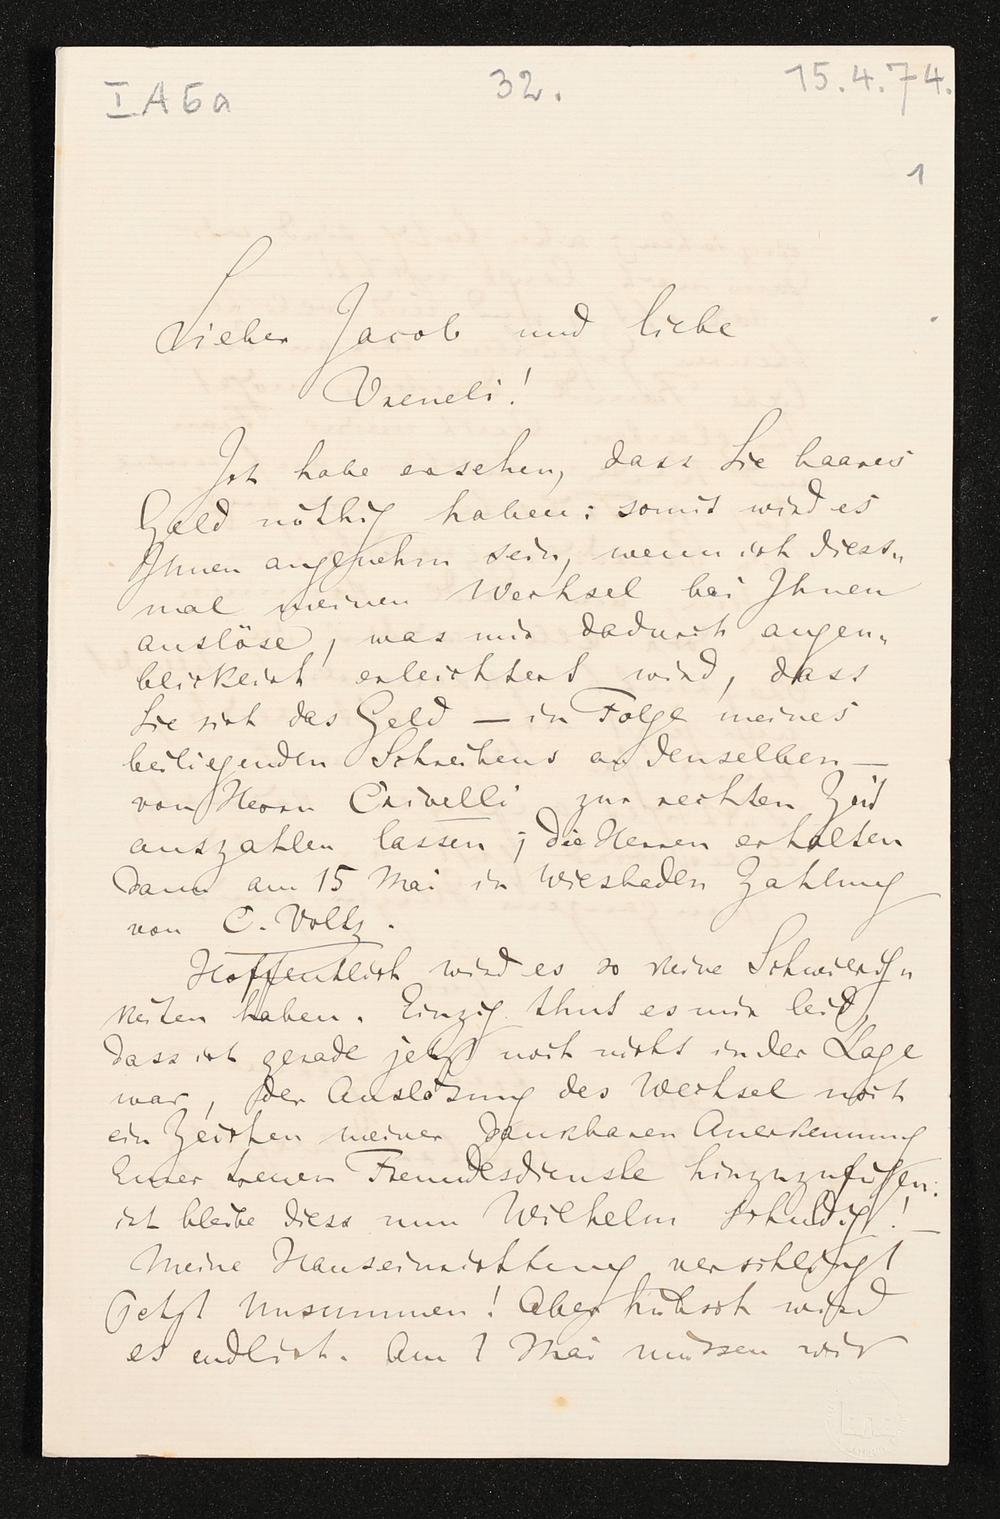 I A 5a 32. 15.4.74.
1
Lieber Jacob und liebe
Vreneli!
Ich habe ersehen, dass Sie baares
Geld nöthig haben: somit wird es
Ihnen angenehm sein, wenn ich dies-
mal meinen Wechsel bei Ihnen
auslöse, was mir dadurch augen-
blicklich erleichtert wird, dass
Sie sich das Geld — in Folge meines
beiliegenden Schreibens an denselben —
von Herrn Crivelli zur rechten Zeit
auszahlen lassen; die Herren erhalten
dann am 15 Mai in Wiesbaden Zahlung
von C. Voltz.
Hoffentlich wird es so keine Schwierig-
keiten haben. Einzig thut es mir leid,
dass ich gerade jetzt noch nicht in der Lage
war, der Auslösung des Wechsel noch
ein Zeichen meiner dankbaren Anerkennung
Eurer treuen Freundesdienste hinzuzufügen:
ich bleibe diess nun Wilhelm schuldig! —
Meine Hauseinrichtung verschlingt
jetzt Unsummen! Aber hübsch wird
es endlich. Am 1 Mai müssen wir